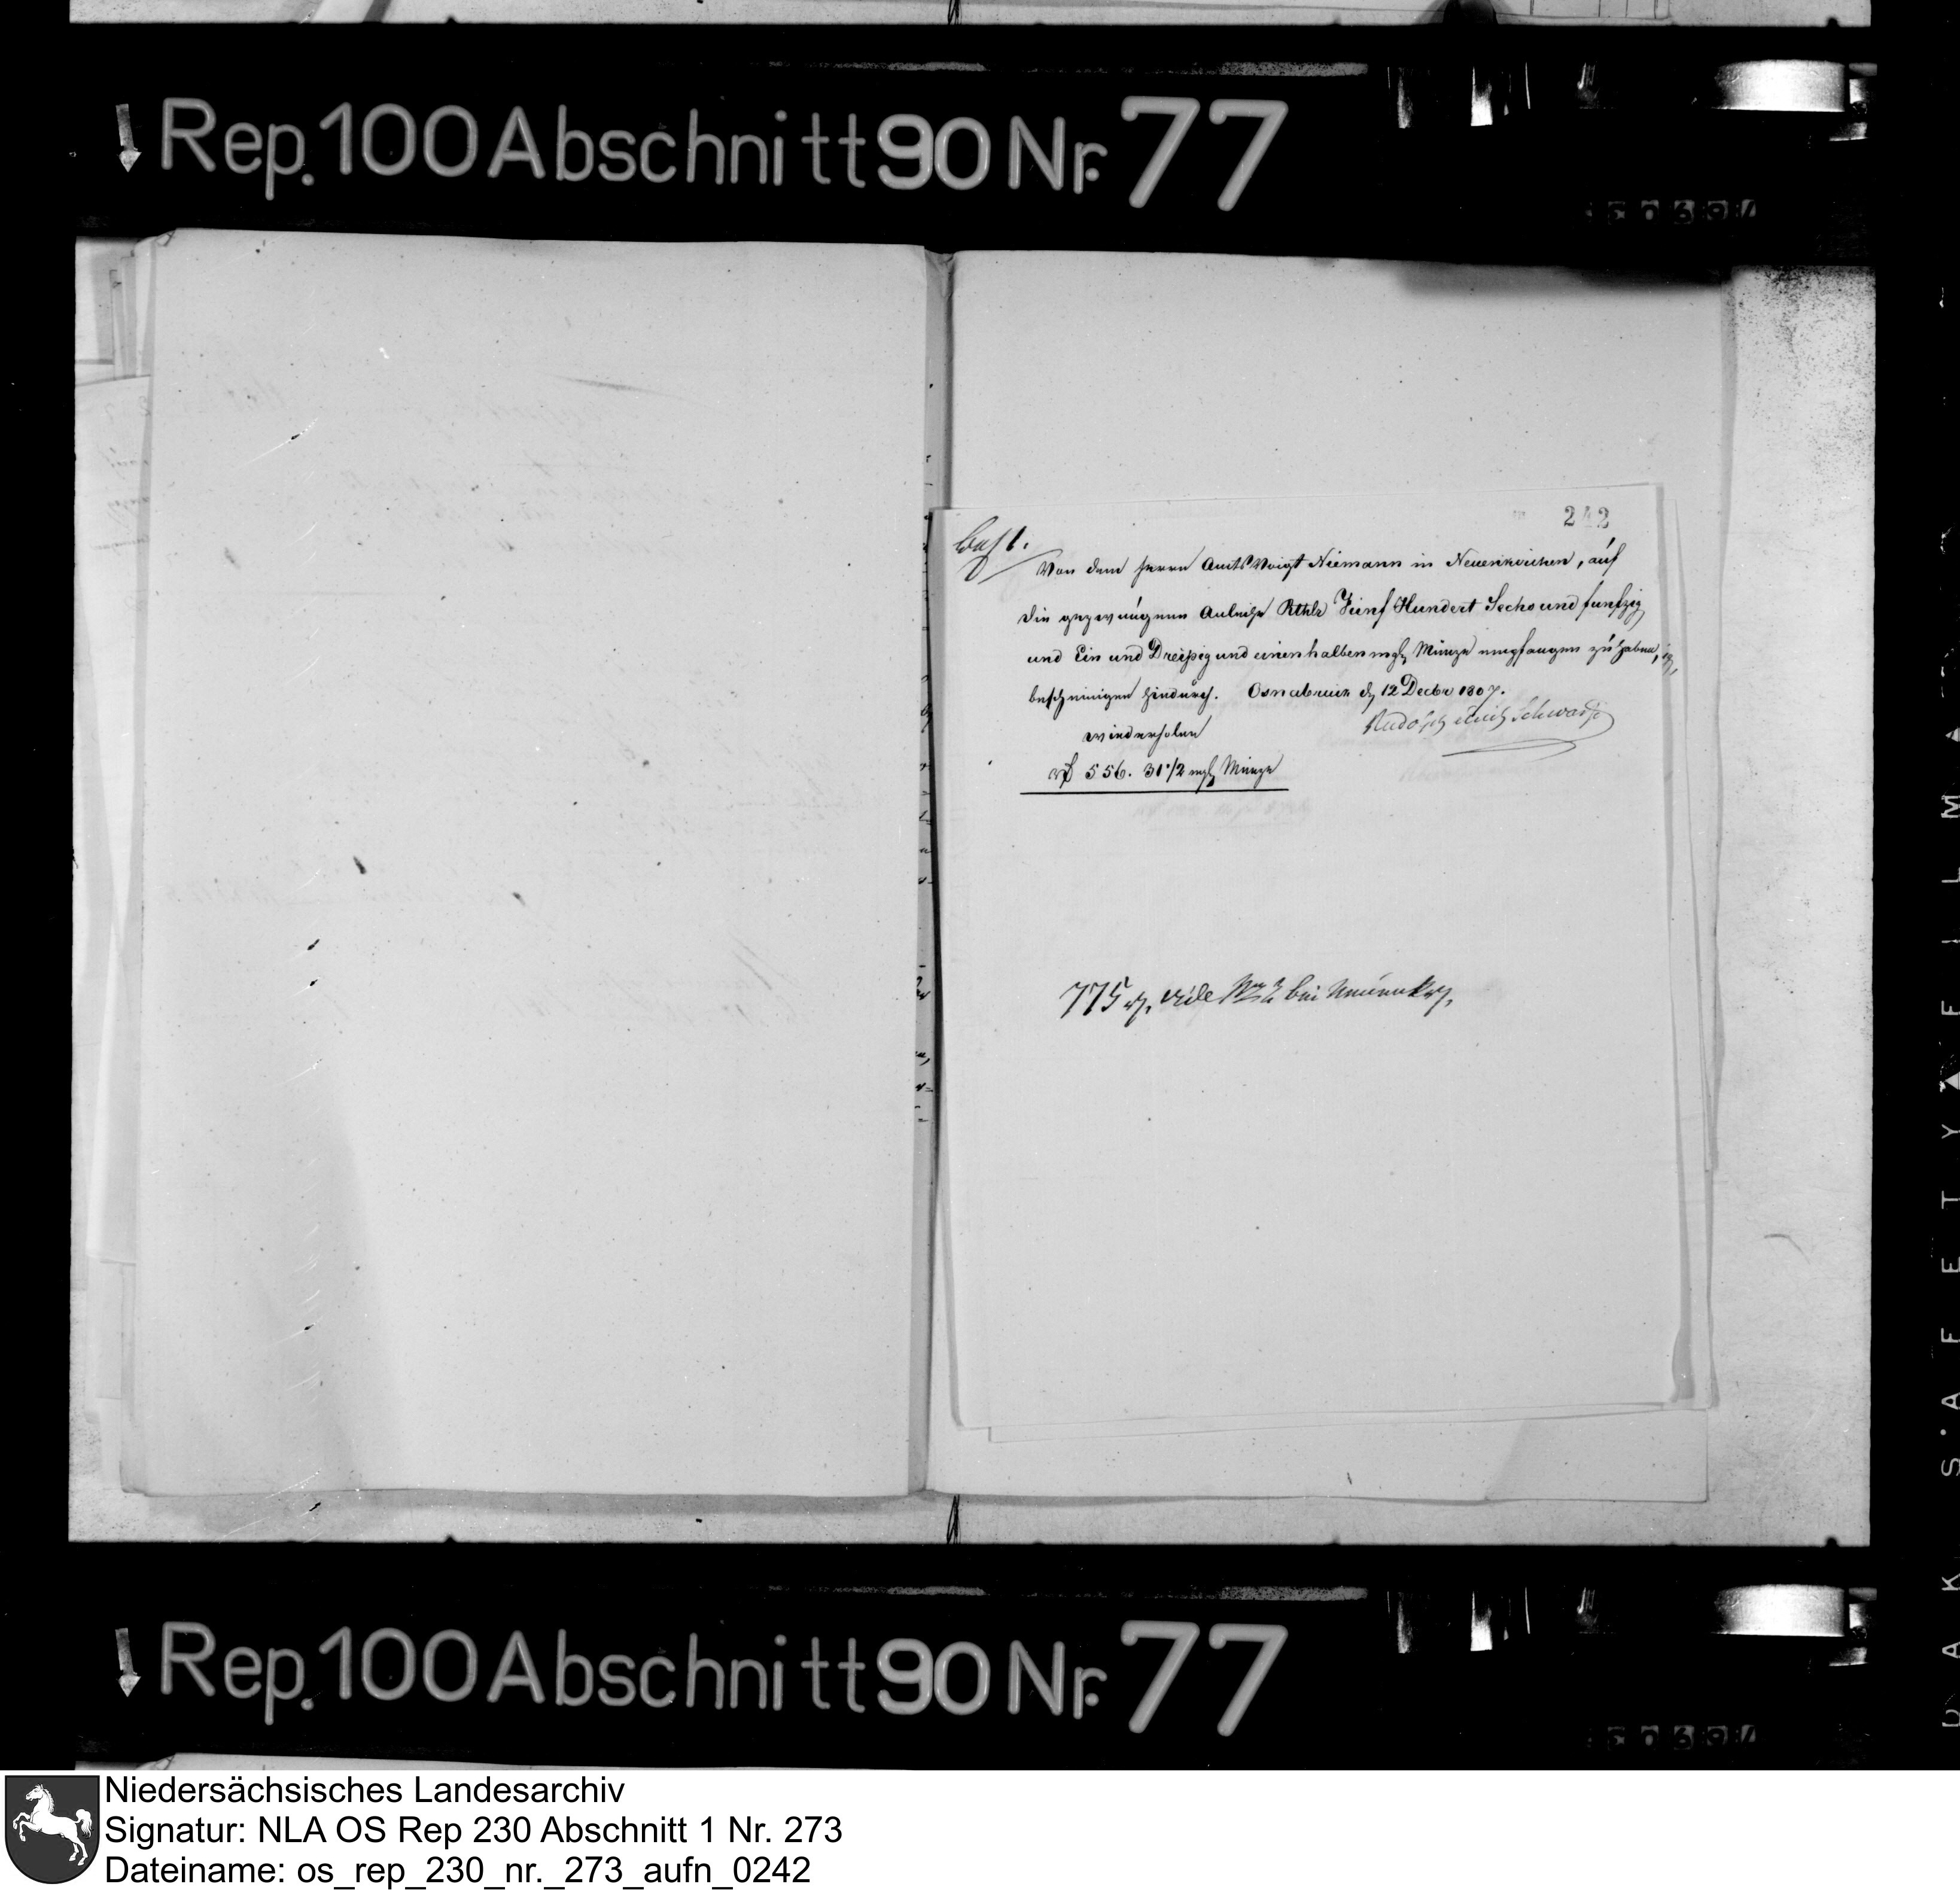 Rep. 100 Abschnitt 90 Nr. 77
242
Von dem Herrn Amts Voigt Niemann in Neuenkirchen, auf
die gezwungene Anleihe Rthlr Fünf Hundert Sechs und funfzig
und Ein und Dreißig und einen halben mgl Münze empfangen zu haben,
bescheinigen hindurch. Osnabrück d 12 Decbr 1807.
wiederholen
Rudolph
556. 31 1/2 mgl Münze
775 vide bei
Rep. 100 Abschnitt 90 Nr. 77
SAFETY FILM
Niedersächsisches Landesarchiv
Signatur: NLA OS Rep 230 Abschnitt 1 Nr. 273
Dateiname: os_rep_230_nr._273_aufn_0242